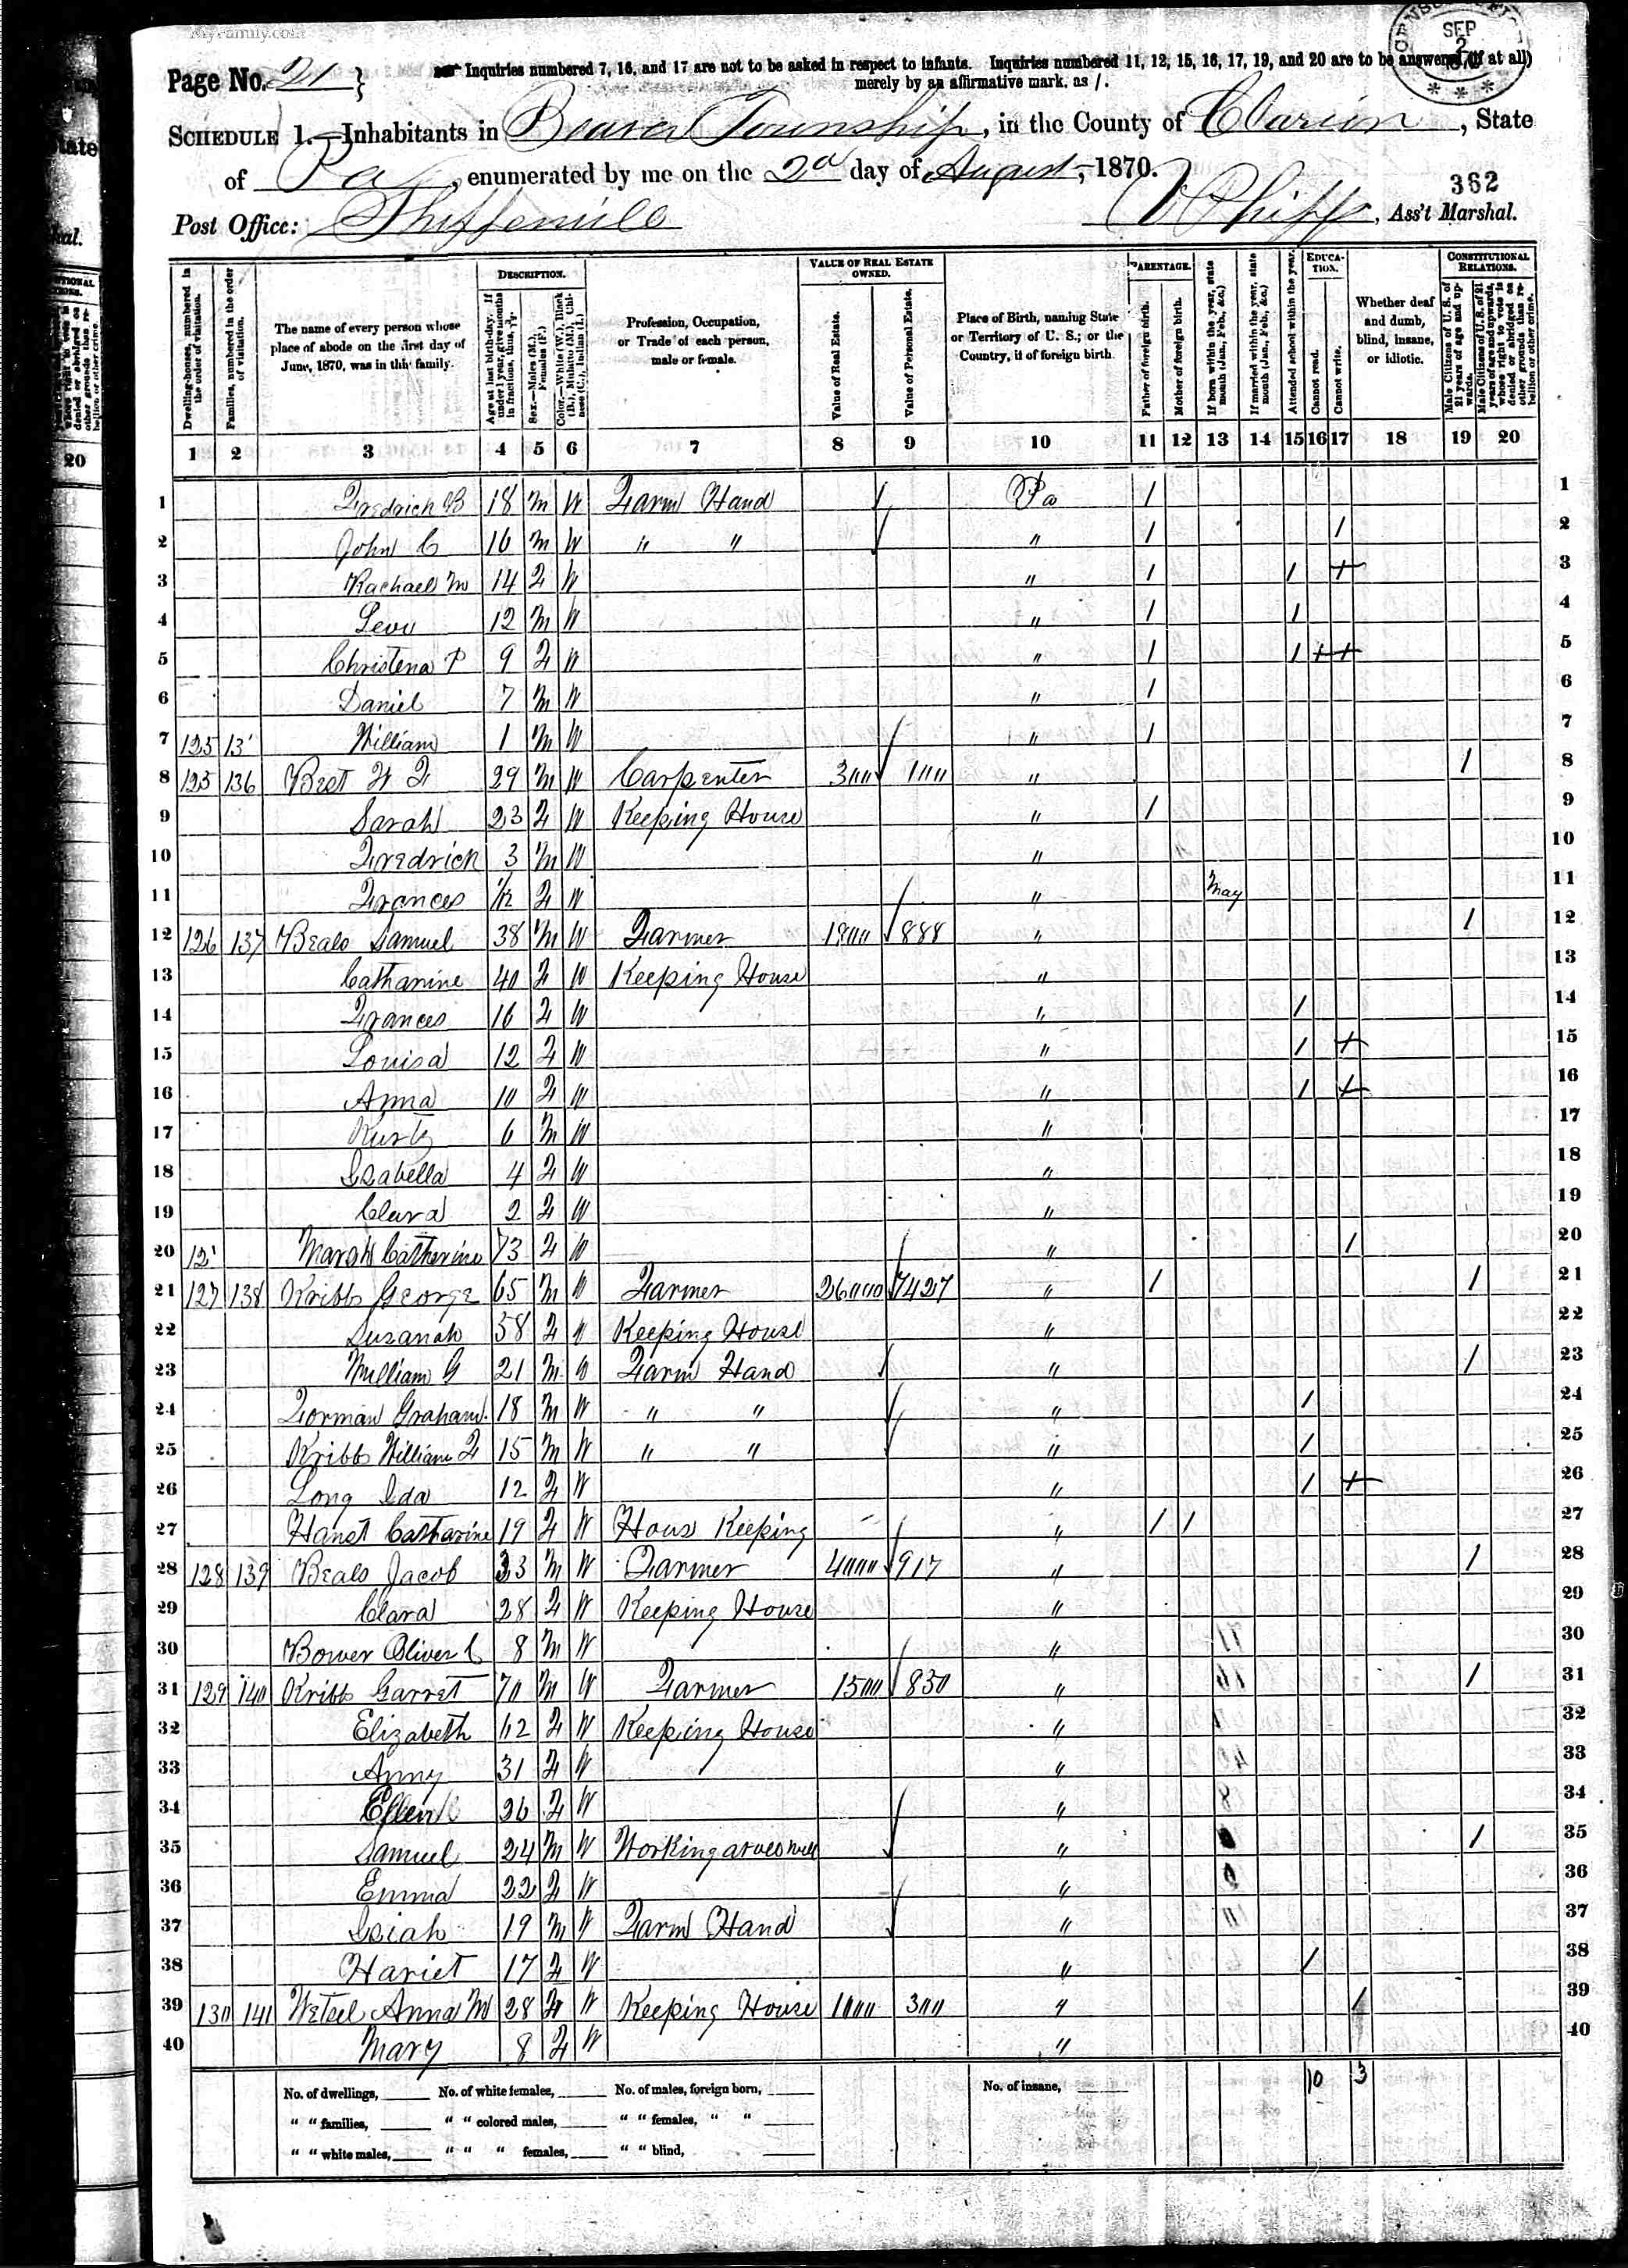 MyFamily.com
CENSUS
SEP
2
Page No. 21 } Inquiries numbered 7, 16, and 17 are not to be asked in respect to infants. Inquiries numbered 11, 12, 15, 16, 17, 19, and 20 are to be answered (if at all)
merely by an affirmative mark, as /.
SCHEDULE 1.—Inhabitants in Beaver Township, in the County of Clarion, State
of Pa, enumerated by me on the 2d day of August, 1870.
362
Post Office: , Ass't Marshal.
VALUE OF REAL ESTATE OWNED.
DESCRIPTION. PARENTAGE. EDUCATION. CONSTITUTIONAL RELATIONS.
Dwelling-houses, numbered in the order of visitation.
Families, numbered in the order of visitation.
The name of every person whose place of abode on the first day of June, 1870, was in this family.
Age at last birth-day. If under 1 year, give months in fractions, thus,
Sex.—Males (M.), Females (F.)
Color.—White (W.), Black (B.), Mulatto (M.), Chinese (C.), Indian (I.)
Profession, Occupation, or Trade of each person, male or female.
Value of Real Estate.
Value of Personal Estate.
Place of Birth, naming State or Territory of U. S.; or the Country, if of foreign birth.
Father of foreign birth.
Mother of foreign birth.
If born within the year, state month (Jan., Feb., &c.)
If married within the year, state month (Jan., Feb., &c.)
Attended school within the year.
Cannot read.
Cannot write.
Whether deaf and dumb, blind, insane, or idiotic.
Male Citizens of U. S. of 21 years of age and upwards.
Male Citizens of U. S. of 21 years of age and upwards, whose right to vote is denied or abridged on other grounds than rebellion or other crime.
1 2 3 4 5 6 7 8 9 10 11 12 13 14 15 16 17 18 19 20
1 Fredrich B 18 M W Farm Hand Pa / 1
2 John C 16 M W " " " / / 2
3 Rachael M 14 F W " / / + 3
4 Levi 12 M W " / / 4
5 Christena P 9 F W " / / + + 5
6 Daniel 7 M W " / 6
7 125 13 William 1 M W " / 7
8 125 136 Best W F 29 M W Carpenter 300 100 " / 8
9 Sarah 23 F W Keeping House " / 9
10 Fredrich 3 M W " 10
11 Frances 1/12 F W " May 11
12 126 137 Beals Samuel 38 M W Farmer 1800 888 " / 12
13 Catharine 40 F W Keeping House " 13
14 Frances 16 F W " / 14
15 Louisa 12 F W " / + 15
16 Anna 10 F W " / + 16
17 Kurtz 6 M W " 17
18 Isabella 4 F W " 18
19 Clara 2 F W " 19
20 12 Marsh Catherine 73 F W " / 20
21 127 138 Kribbs George 65 M W Farmer 26000 7427 " / / 21
22 Susanah 58 F W Keeping House " 22
23 William G 21 M W Farm Hand " / 23
24 Forman Graham 18 M W " " " / 24
25 Kribbs William F 15 M W " " " / 25
26 Long Ida 12 F W " / + 26
27 Hanst Catharine 19 F W Hous Keeping " / / 27
28 128 139 Beals Jacob 33 M W Farmer 4000 917 " / 28
29 Clara 28 F W Keeping House " 29
30 Bower Oliver C 8 M W " 30
31 129 140 Kribbs Garret 70 M W Farmer 1500 850 " / 31
32 Elizabeth 62 F W Keeping House " 32
33 Anny 31 F W " 33
34 Ellen 26 F W " 34
35 Samuel 24 M W Working " / 35
36 Emma 22 F W " 36
37 Isiah 19 M W Farm Hand " 37
38 Hariet 17 F W " / 38
39 130 141 Anna M 28 F W Keeping House 1000 300 " / 39
40 Mary 8 F W " 40
10 3
No. of dwellings, No. of white females, No. of males, foreign born, No. of insane,
" " families, " " colored males, " " females, " "
" " white males, " " " females, " " blind,